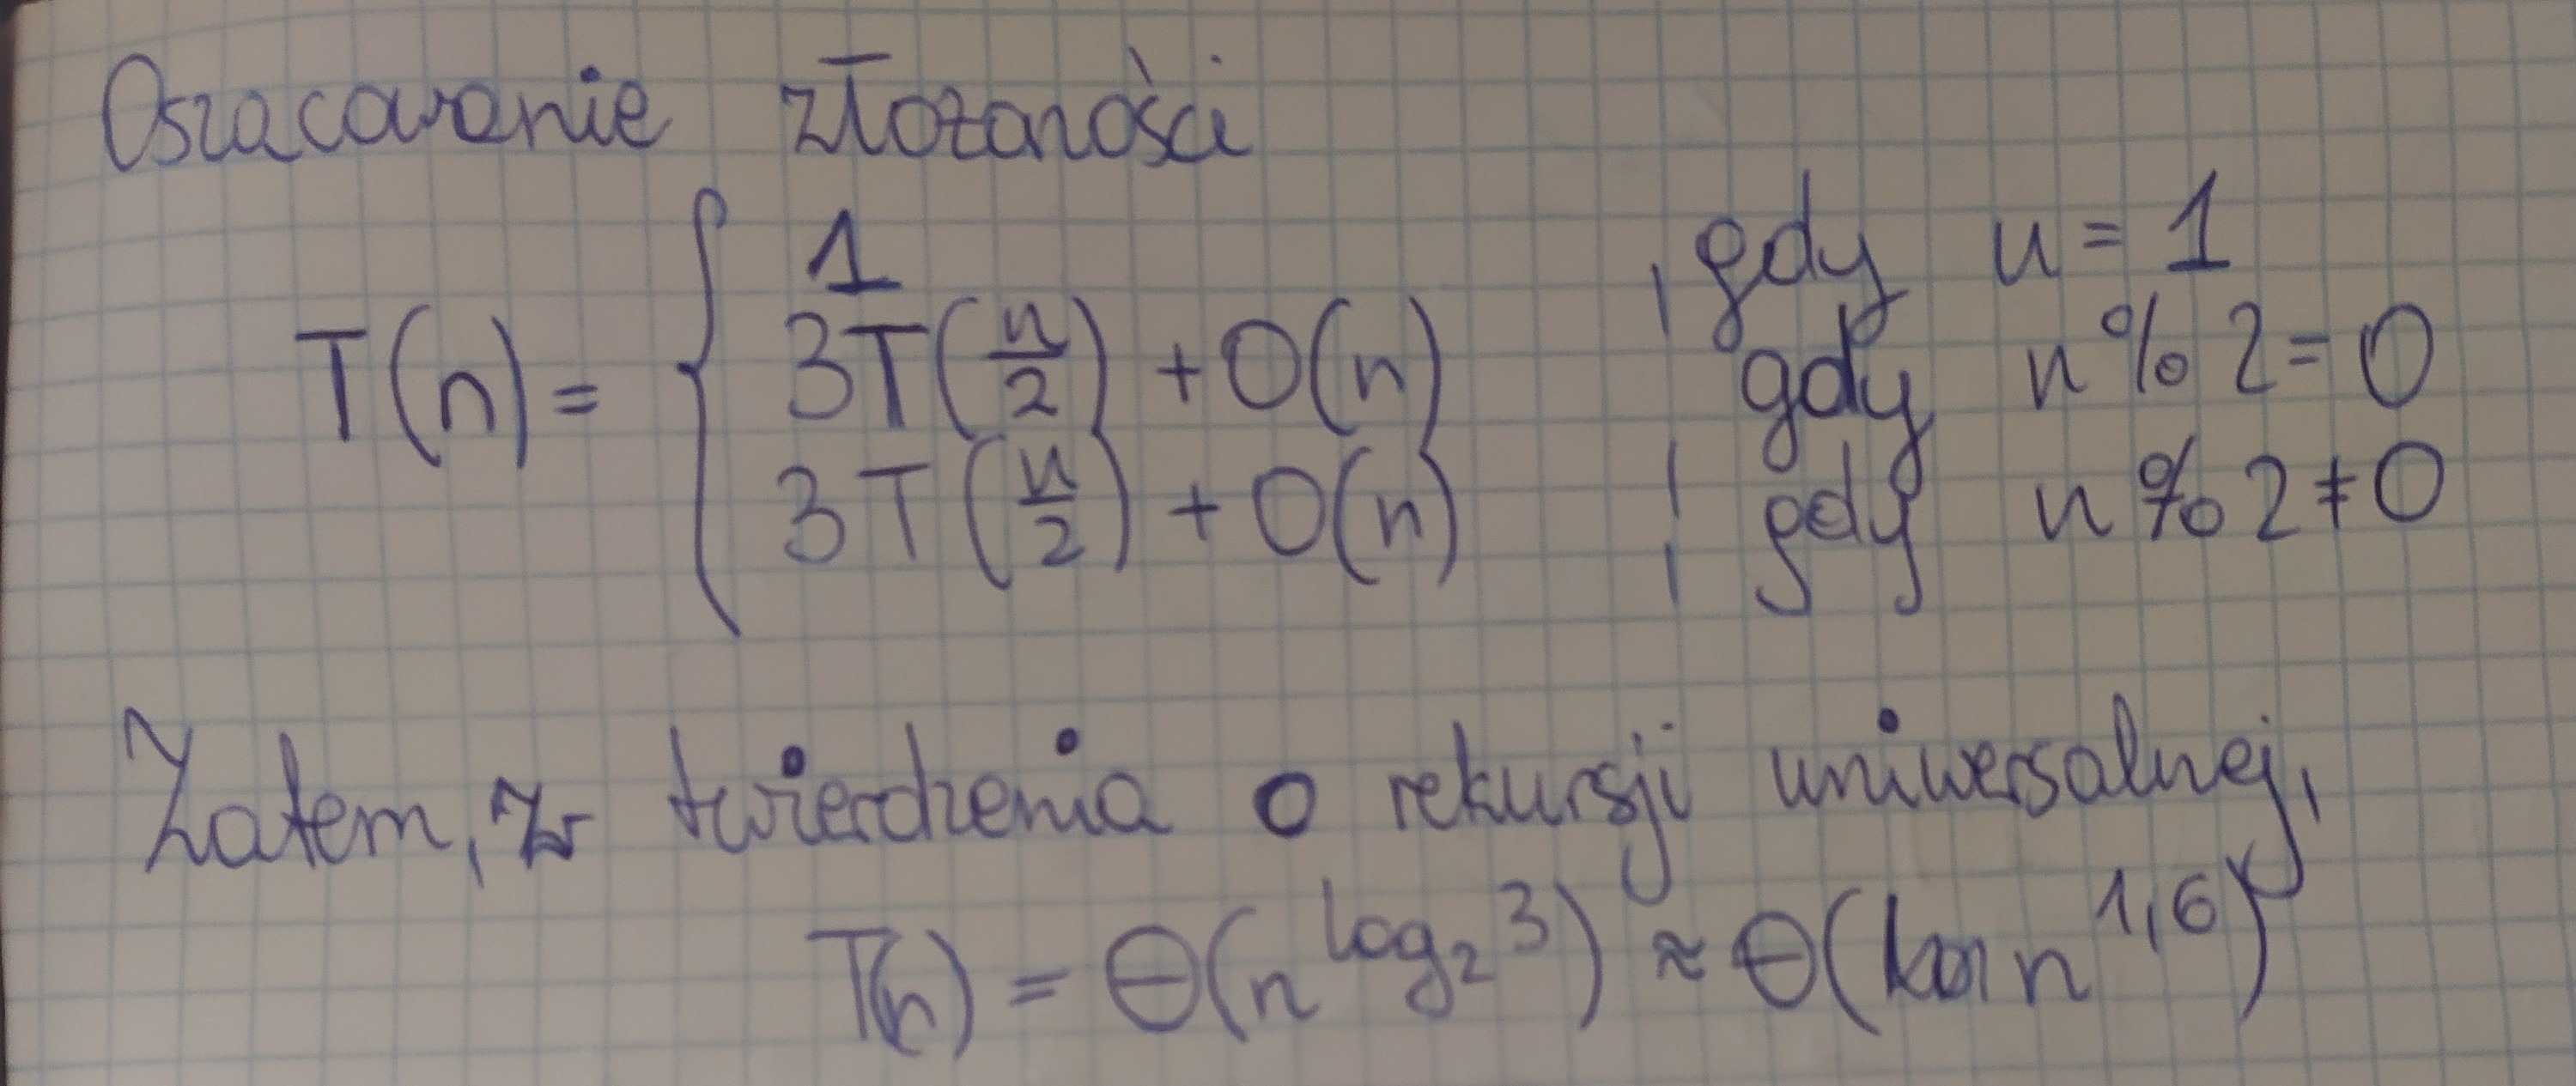 Oszacowanie złożoności
T(n) = { 1 , gdy n = 1
3T(n/2) + O(n) gdy n % 2 = 0
3T(n/2) + O(n) , gdy n % 2 ≠ 0
Zatem, z twierdzenia o rekursji uniwersalnej,
T(n) = Θ(n^log₂3) ≈ Θ(n^1,6)